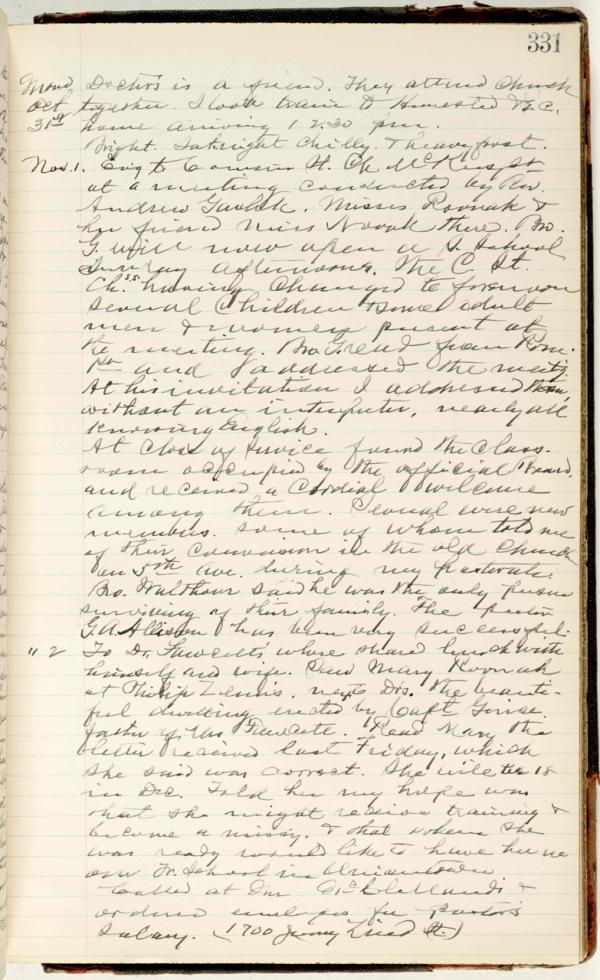 331
Mond Doctors is a friend. They attend church
Oct together. I took train to Homested &c.
31st home arriving 12.30 pm.
Bright. Last night chilly. & heavy frost.
Nov. 1. Evg to Comison St. Ch. McKeespt
at a meeting conducted by Rev.
Andrew Misses Rovnak &
her friend Miss Novak there. Bro.
G. will now open a S. School
Sunday afternoons. The C St.
Ch. S.S. having changed to forenoon
Several Children & some adult
men & women present at
the meeting. Bro. G. read from Rom.
and addressed the meetg
At his invitation I addressed them,
without an interpreter, nearly all
knowing English.
At close of service found the class
room occupied by the official Board,
and received a cordial welcome
among them. Several were new
members. Some of whom told me
of their conversion in the old church
on 5th Ave. during my pastorate.
Bro. Walthour said he was the only person
surviving of their family. The pastor
G. A. Allison has been very successful.
" 2 To Dr. Fawcetts, where shared lunch with
himself and wife. Saw Mary Rovnak
at Philip next to Drs. the beauti-
ful dwelling erected by Capt.
father of Mrs Fawcett. Read Mary the
letter received last Friday, which
she said was correct. She will be 18
in Dec. Told her my hope was
that she might receive training &
become a missy. & that when she
was ready would like to have her in
our School in Uniontown
Called at &
ordered envelopes for pastor's
salary. (1700 Jenny Lind St.)